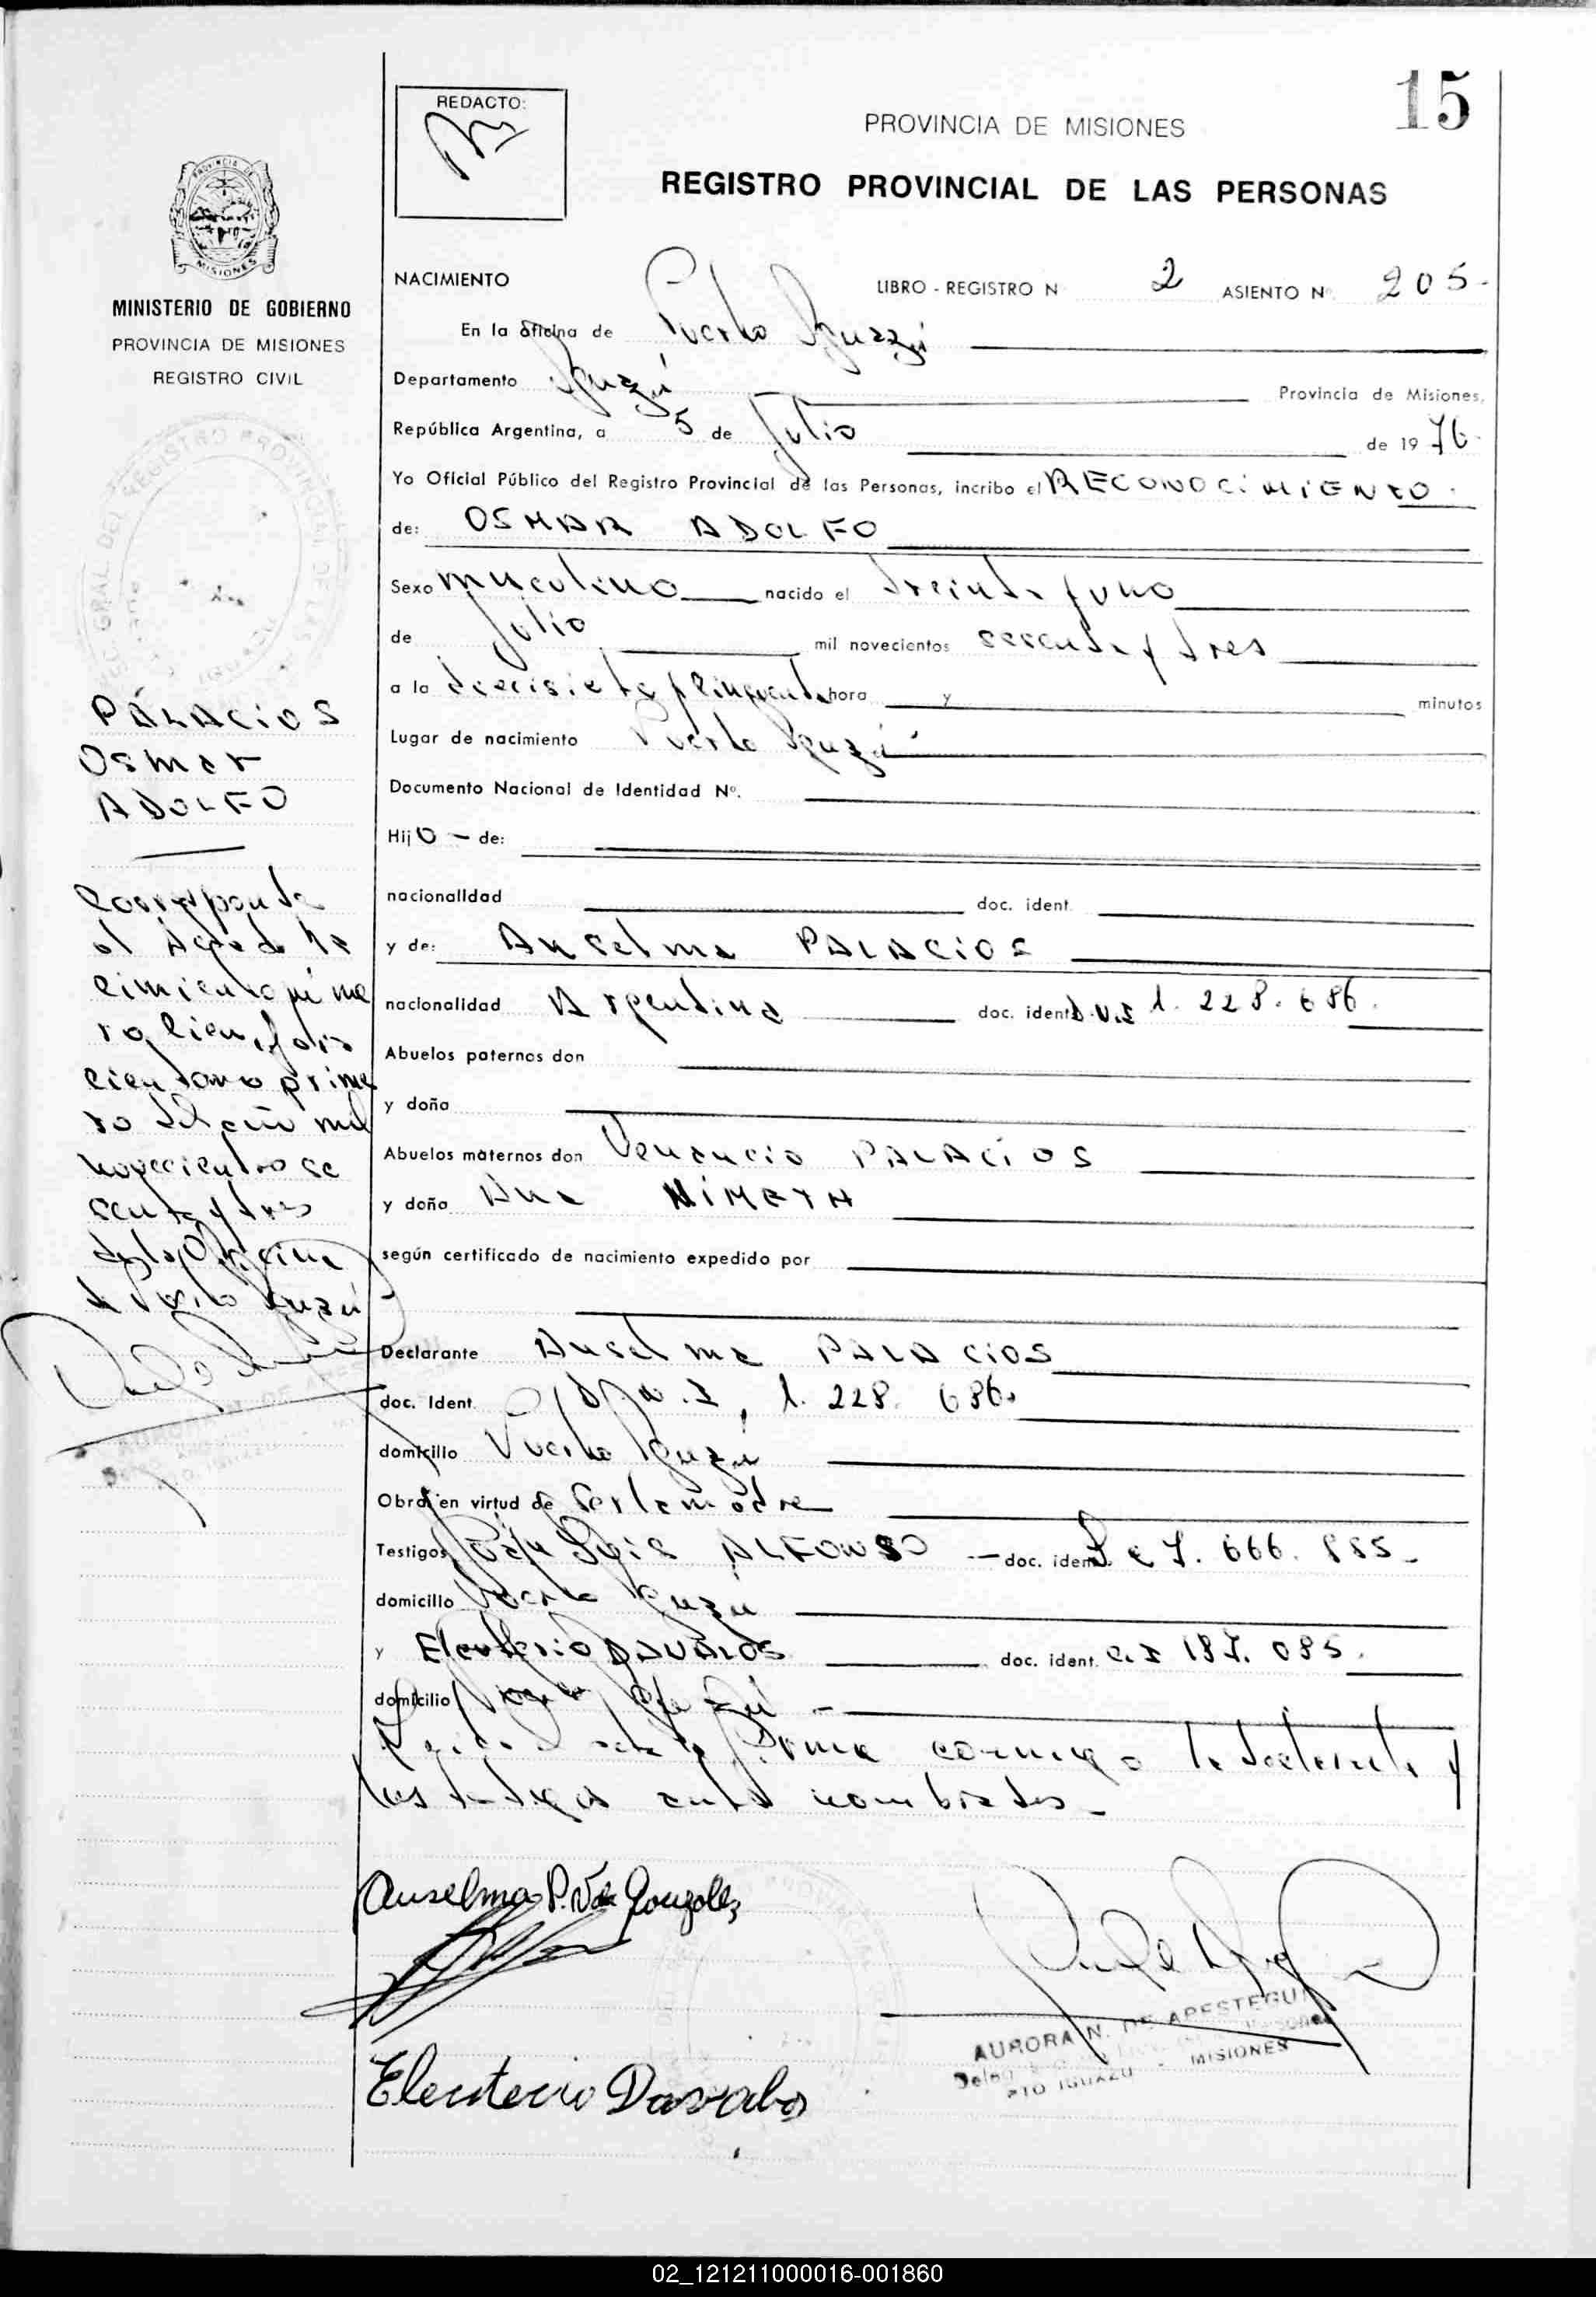 15
REDACTO:
PROVINCIA DE MISIONES
REGISTRO PROVINCIAL DE LAS PERSONAS
MISIONES
MINISTERIO DE GOBIERNO
PROVINCIA DE MISIONES
REGISTRO CIVIL
NACIMIENTO
LIBRO - REGISTRO N 2 ASIENTO Nº 205-
En la oficina de Puerto Iguazú
Departamento Iguazú Provincia de Misiones,
República Argentina, a 5 de Julio de 1976.
Yo Oficial Público del Registro Provincial de las Personas, incribo el RECONOCIMIENTO.
de: OSMAR ADOLFO
Sexo masculino nacido el treinta y uno
de julio mil novecientos sesenta y tres
a la diecisiete y cincuenta hora y minutos
Lugar de nacimiento Puerto Iguazú
Documento Nacional de Identidad Nº.
Hijo - de:
nacionalidad doc. ident.
y de: Anselma PALACIOS
nacionalidad Argentina doc. ident D.N.I 1.228.686.
Abuelos paternos don
y doña
Abuelos maternos don Venancio PALACIOS
y doña Ana NIMETH
según certificado de nacimiento expedido por
Declarante Anselma PALACIOS
doc. Ident. D.N.I, 1.228.686.
domicilio Puerto Iguazú
Obra en virtud de ser la madre
Testigos ALFONSO - doc. ident. 7.666.885-
domicilio Puerto Iguazú
y Eleuterio DAVALOS doc. ident. C.I 187.085.
domicilio Puerto Iguazú -
firma conmigo la declarante y
los testigos nombrados-
PALACIOS
Osmar
ADOLFO
Corresponde
al Acta de Na
cimiento núme
ro cien, folio
cien tomo prime
ro del año mil
novecientos se
senta y tres
de la Oficina
de Puerto Iguazú
Anselma P. Vda Gonzalez
Eleuterio Davalos
AURORA N. DE APESTEGUI
PTO IGUAZU - MISIONES
02_121211000016-001860